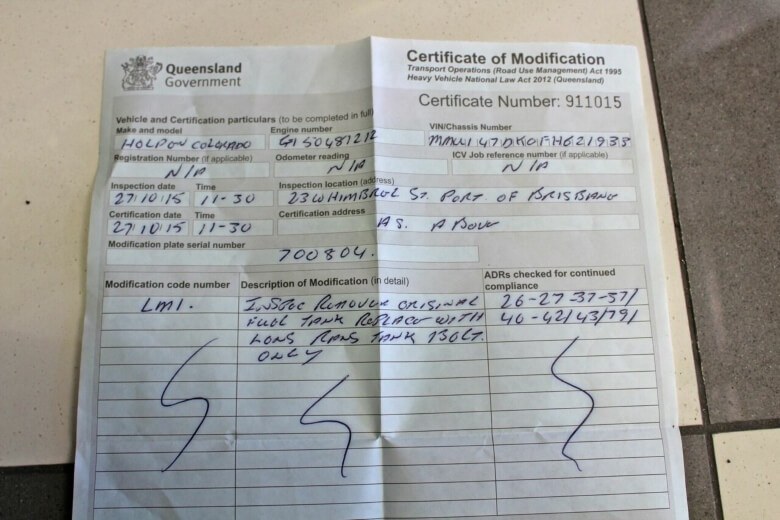 Queensland
Government
Certificate of Modification
Transport Operations (Road Use Management) Act 1995
Heavy Vehicle National Law Act 2012 (Queensland)
Certificate Number: 911015
Vehicle and Certification particulars (to be completed in full)
Make and model Engine number VIN/Chassis Number
HOLDEN COLORADO
Registration Number (if applicable) Odometer reading ICV Job reference number (if applicable)
N/A N/A N/A
Inspection date Time Inspection location (address)
27 10 15 11-30 23 WHIMBREL ST. PORT OF BRISBANE
Certification date Time Certification address
27 10 15 11-30 AS. ABOVE
Modification plate serial number
700804.
Modification code number Description of Modification (in detail) ADRs checked for continued compliance
LM1. REMOVE ORIGINAL 26-27-37-57/
FUEL TANK REPLACE WITH 40-42/43/79/
LONG RANG TANK BOLT.
ONLY